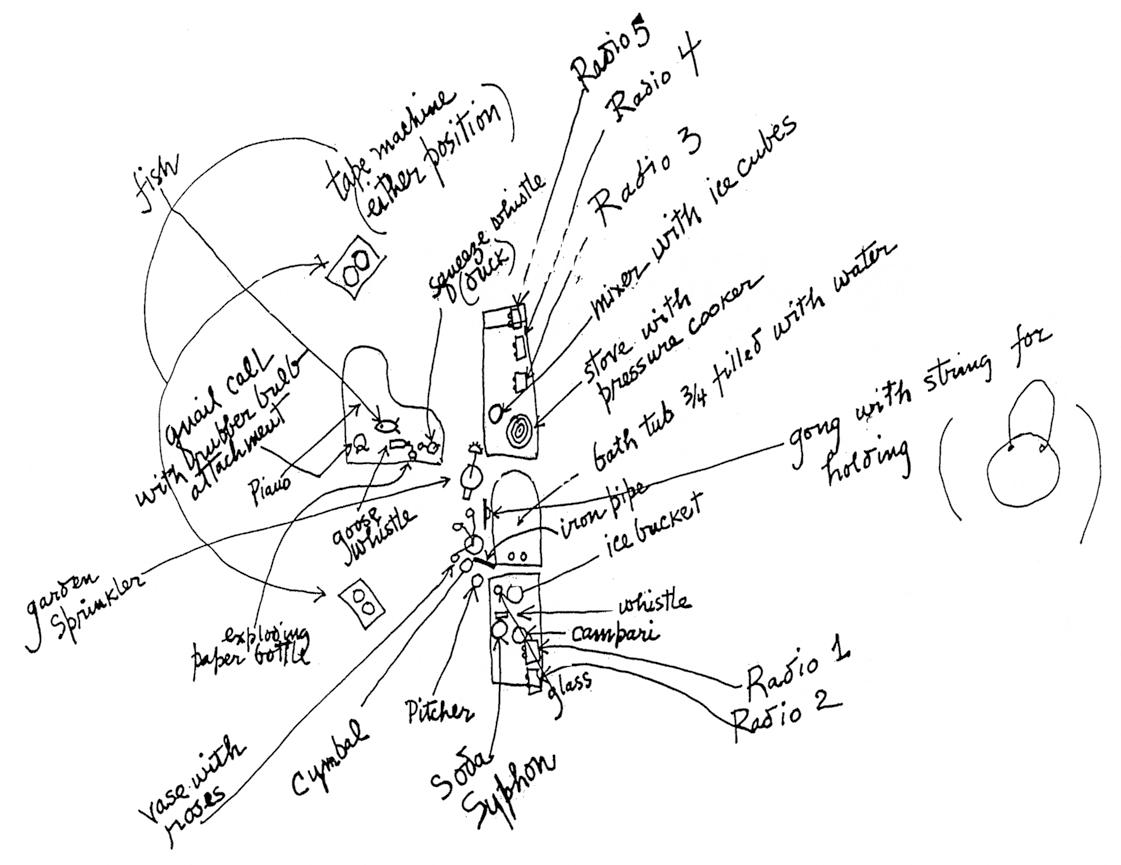 Radio 5
Radio 4
Radio 3
tape machine
(either position)
fish
squeeze whistle
(duck)
mixer with ice cubes
stove with
pressure cooker
bath tub 3/4 filled with water
gong with string for
holding
quail call
with rubber bulb
attachment
Piano
goose
whistle
iron pipe
ice bucket
garden
Sprinkler
exploding
paper bottle
whistle
campari
Radio 1
Radio 2
glass
Pitcher
Cymbal
vase with
roses
Soda
Syphon